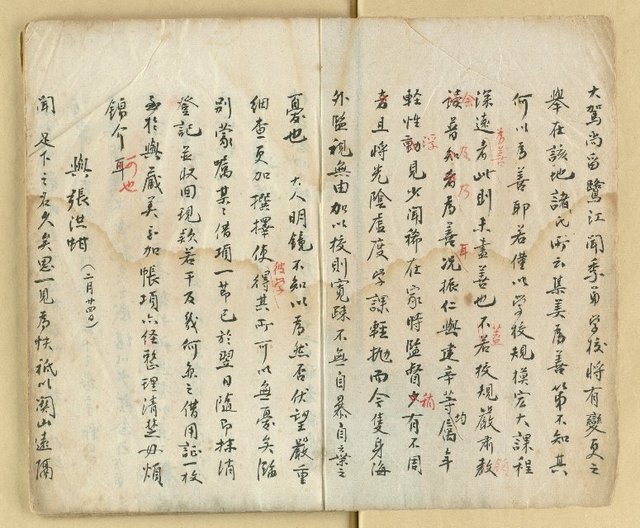 大駕尚留鷺江聞季弟学校將有變更之
舉在該地諸氏所云集美為善第不知其
何以為善耶若僅以学校規模宏大課程
深遠者此則未盡善也不若校規嚴肅教
讀普知者為善況振仁與建辛等屬年
輕性動見少聞稀在家時監督又有不周
者且將光陰虛度学課輕抛而今隻身海
外監視無由加以校則寬疎不無自暴自棄之
憂也 大人明鏡不知以為然否伏望嚴重
細查更加撰擇使得其所可以無憂矣臨
別蒙囑某之借項一節已於翌日隨即抹消
登記並收回現款若干及幾何無之借用証一枚
至於與藏美加帳項亦經整理清楚毋煩
錦介耳 可也
與張洪蚶(二月廿四日)
聞 足下之名久矣思一見為快祇以關山遠隔